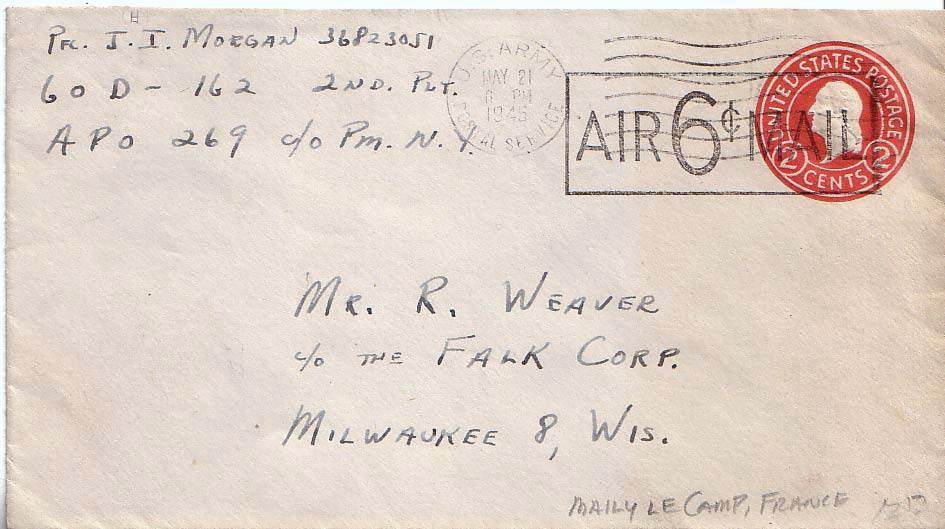 Pfc. J. I. MORGAN 36823051
60 D - 162 2ND. PLT.
APO 269 c/o PM. N.Y.
U.S. ARMY
MAY 21
PM
1945
POSTAL SERVICE
AIR 6¢ MAIL
UNITED STATES POSTAGE
2 CENTS 2
MR. R. WEAVER
c/o THE FALK CORP.
MILWAUKEE 8, WIS.
MAILY LE CAMP, FRANCE